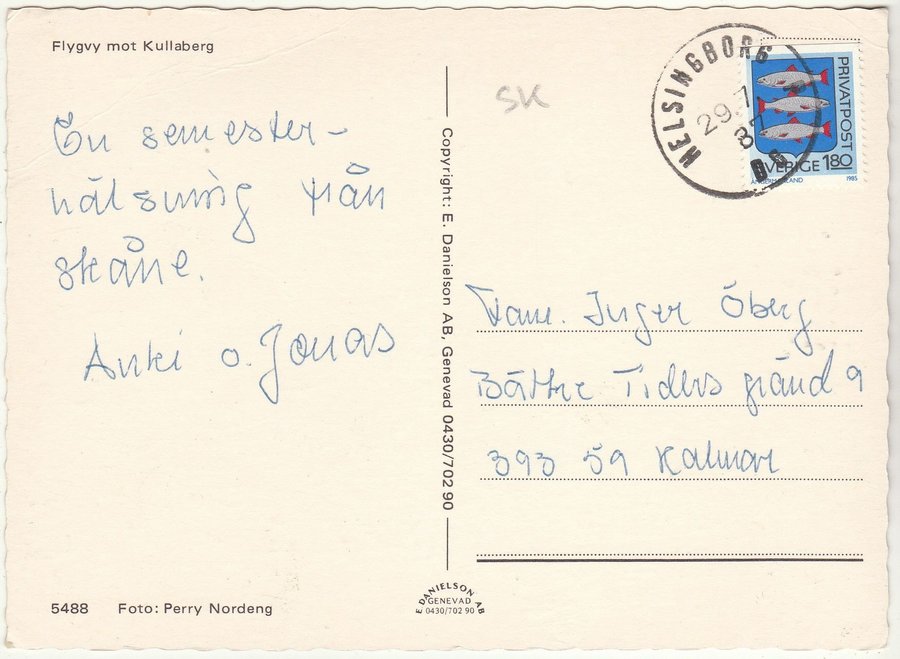 Flygvy mot Kullaberg
En semester-
hälsning från
skåne.
Anki o. Jonas
SK
Copyright: E. Danielson AB, Genevad 0430/702 90
HELSINGBORG
29.7
87
PRIVATPOST
SVERIGE 1.80
ÅNGERMANLAND 1985
Fam. Inger Öberg
Bättre Tiders gränd 9
393 59 Kalmar
5488 Foto: Perry Nordeng
E DANIELSON AB
GENEVAD
0430/702 90